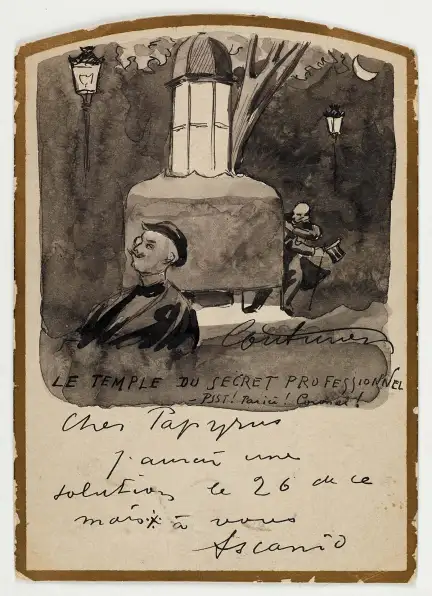 Couturier
LE TEMPLE DU SECRET PROFESSIONNEL
- PSST! Par ici! Coronet!
Cher Papyrus
J'aurai une
solution le 26 de ce
mois à vous
Ascanio